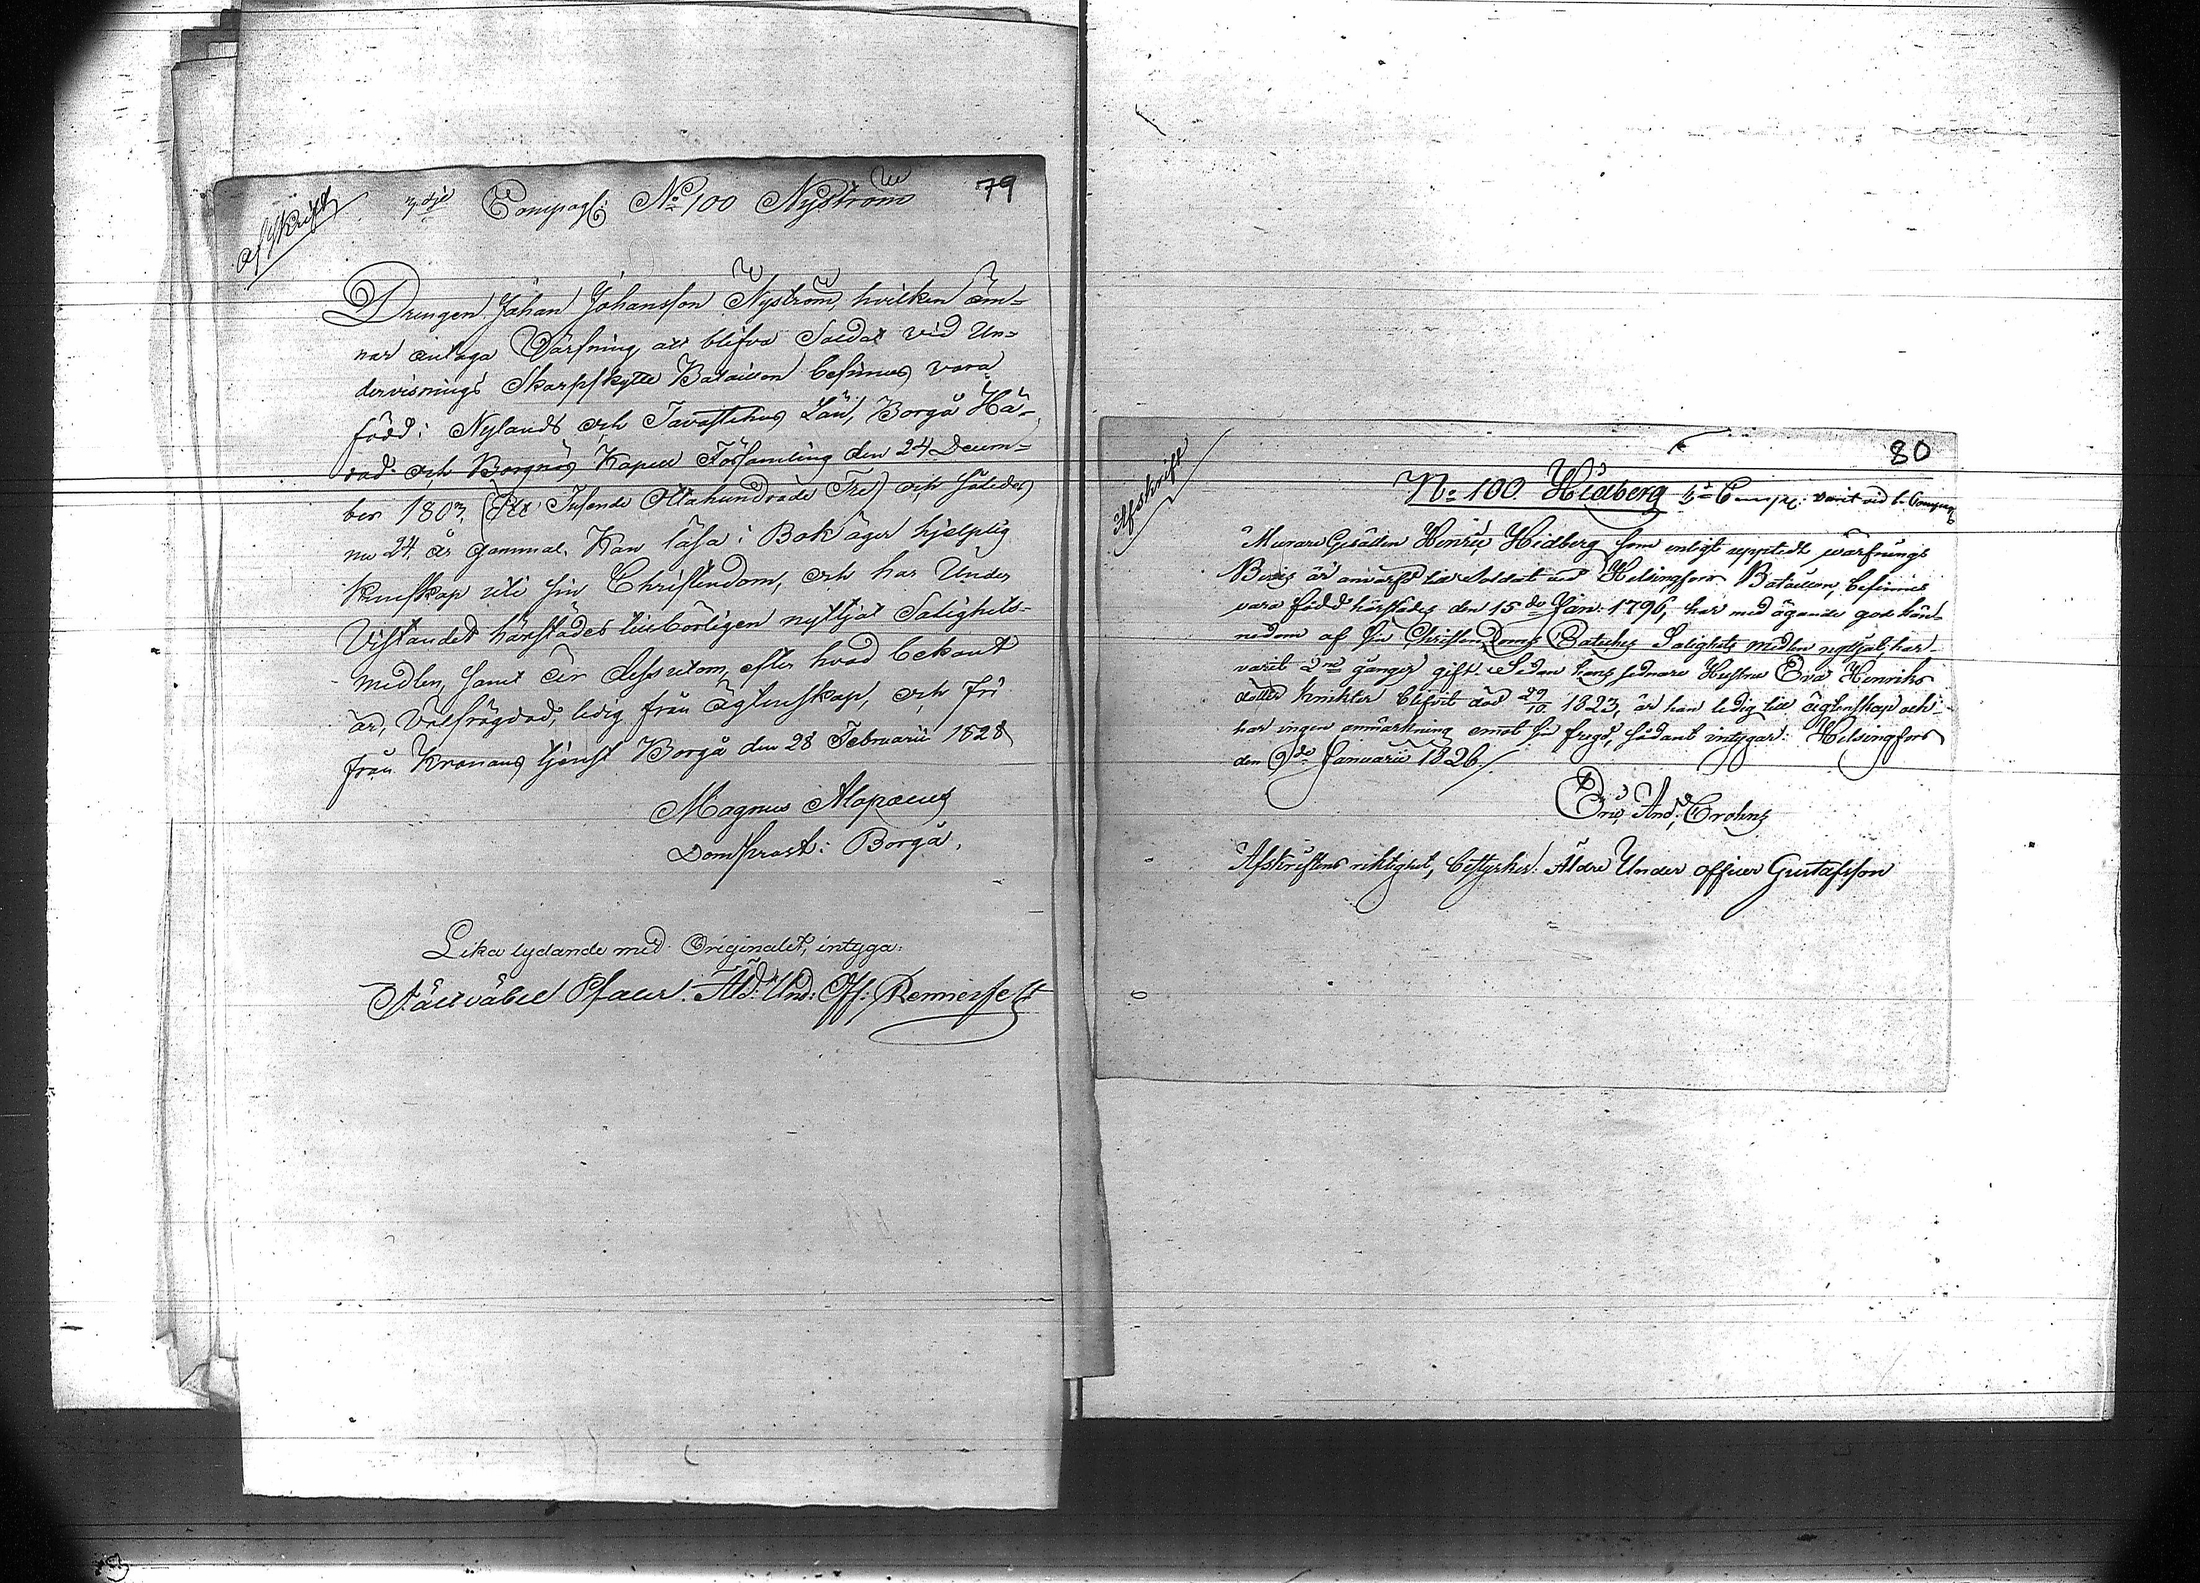 79
Afskrift
3dje Compagl: No 100 Nyström
Drengen Johan Johansson Nyström, hvilken äm-
nar antaga Värfning att blifva Soldat vid Un-
dervisnings Skarpskytte Bataillon befinnes vara
född i Nylands och Tavastehus Län, Borgå Hä-
rad och Borgnäs Kapell Församling den 24 Decem-
ber 1803, (Ett Tusende Ottahundrade Tre) och således
nu 24 år gammal. Kan läsa i Bok äger hjelplig
kunskap uti sin Christendom, och har Under
Vistandet härstädes tillbörligen nyttjat Salighets-
medlen, samt är dessutom, efter hvad bekant
är, Välfrägdad, ledig från Ägtenskap, och fri
från Kronans tjenst Borgå den 28 Februarii 1828
Magnus Alopaeus
Domprost: Borgå.
Lika lydande med Originalet, intyga:
Fältväbel Pfaler. Äld: Und: Off: Rennerfelt
80
Afskrift
No 100 Hidberg Compl: varit vid Compagl
Murare Gesällen Henric Hidberg som enligt upptedt värfnings
Bevis är anvärfd till Soldat vid Helsingfors Bataillon, befinnes
vara född härstädes den 15de Jan. 1796, har med ägande god kän-
nedom af sin Christendoms Salighets medlen nyttjat, har
varit 2ne gånger gift. Sedan hans sednare Hustru Eva Henriks
dotter blifvit död 29/10 1823, är han ledig till ägtenskap och
har ingen anmärkning emot sin fregd, sådant intygar: Helsingfors
den 9de Januarii 1826.
Eric And: Crohns
Afskriftens riktighet, bestyrker: Äldre Under officer Gustafsson